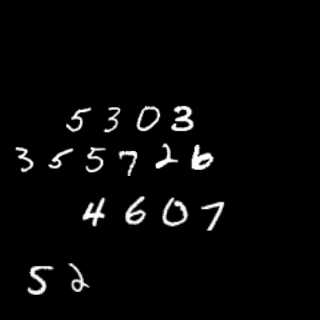 5303
355726
4607
52